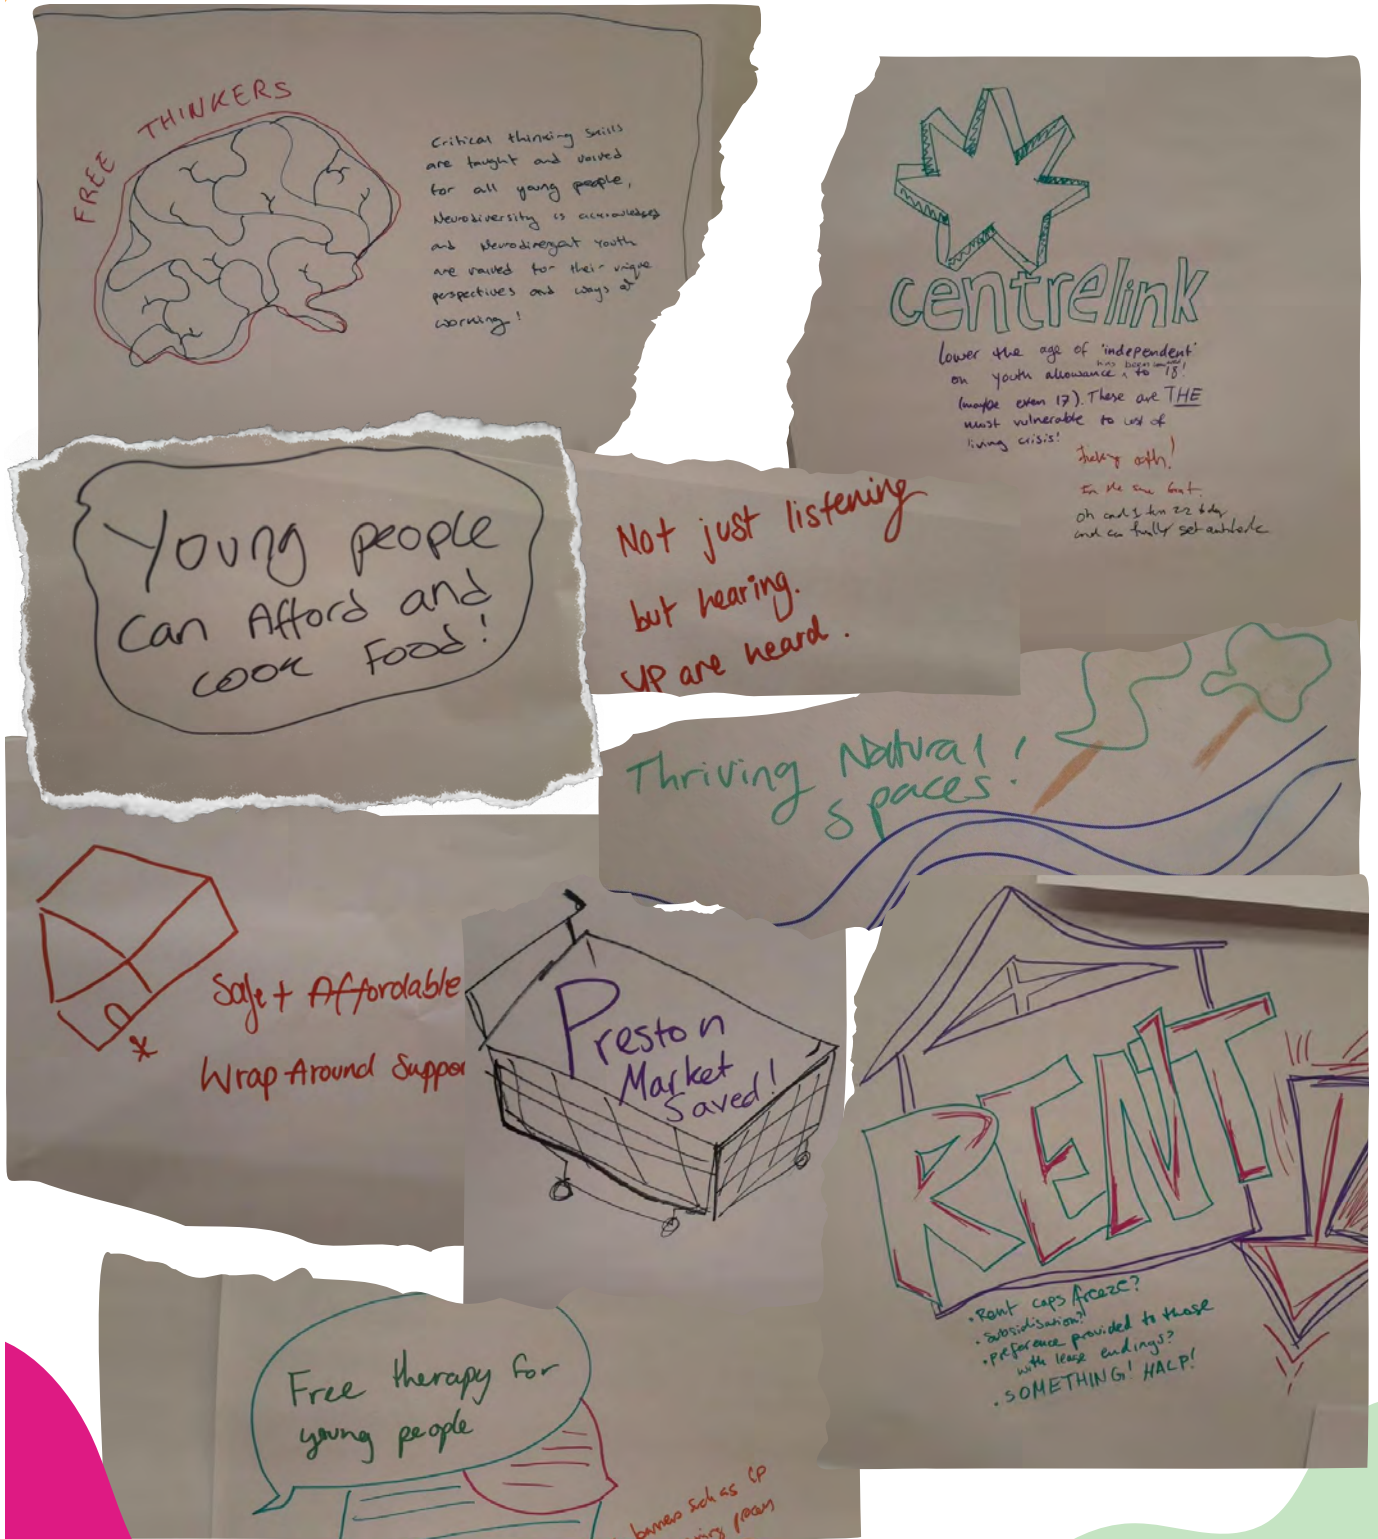 FREE THINKERS
Critical thinking skills
are taught and valued
for all young people,
Neurodiversity is acknowledged
and Neurodivergent youth
are valued for their unique
perspectives and ways of
working!
centrelink
Lower the age of 'independent'
on youth allowance, to 18!
(maybe even 17). These are THE
most vulnerable to cost of
living crisis!
Young people
can Afford and
cook Food!
Not just listening
but hearing.
YP are heard.
Thriving Natural
spaces!
Safe + Affordable
Wrap Around Suppor
Preston
Market
Saved!
RENT
• Rent caps freeze?
• subsidisation?!
• preference provided to those
with lease endings?
• SOMETHING! HALP!
Free therapy for
young people
barriers such as GP